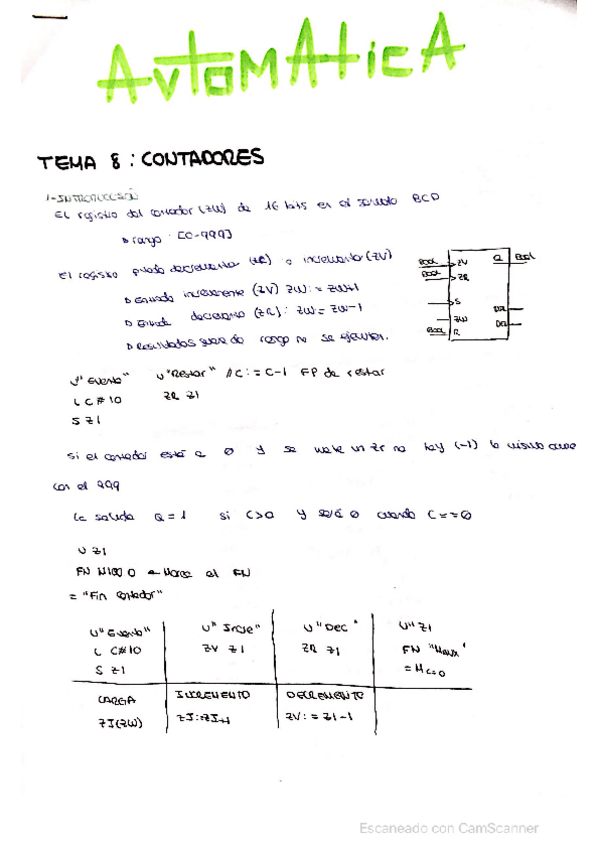 AUTOMATICA
TEMA 8: CONTADORES
1-INTRODUCCIÓN
El registro del contador (ZW) de 16 bits en el formato BCD
▷ rango: [0-999]
El registro puede decrementar (ZR) o incrementar (ZV)
▷ Entrada incremente (ZV) ZW:= ZW+1
▷ Entrada decremento (ZR): ZW:= ZW-1
▷ Resultados fuera de rango no se ejecutan.
Bool ZV Q Bool
Bool ZR
S
ZW DUAL
Bool R DEZ
U"Evento" U"Restar" //C:=C-1 FP de restar
L C#10 ZR Z1
S Z1
Si el contador está a 0 y se mete un ZR no hay (-1) lo mismo
con el 999
La salida Q=1 si C>0 y será 0 cuando C==0
U Z1
FN M100.0 ← Marca el FN
= "Fin contador"
U"Evento" U"Incre" U"Dec" U"Z1
L C#10 ZV Z1 ZR Z1 FN "Maux"
S Z1 = M C=0
CARGA INCREMENTO DECREMENTO
ZI(ZW) ZI:ZI+1 ZV:= ZI-1
Escaneado con CamScanner